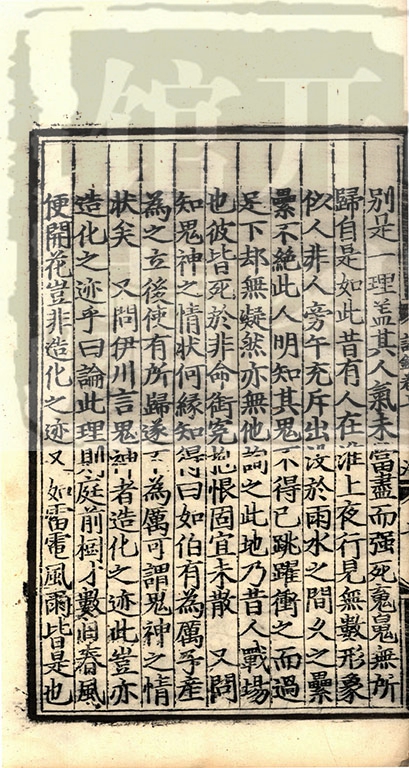 別是一理盖其人氣未當盡而强死䰟魄無所
歸自是如此昔有人在淮上夜行見無數形象
似人非人旁午充斥出没於雨水之間久之纍
纍不絶此人明知其鬼不得已跳躍衝之而過
足下却無礙然亦無他詢之此地乃昔人戰場
也彼皆死於非命衘寃抱恨固宜未散 又問
知鬼神之情狀何縁知得曰如伯有為厲子產
為之立後使有所歸遂不為厲可謂鬼神之情
狀矣 又問伊川言鬼神者造化之迹此豈亦
造化之迹乎曰論此理則庭前樹才數日春風
便開花豈非造化之迹又如雷電風雨皆是也